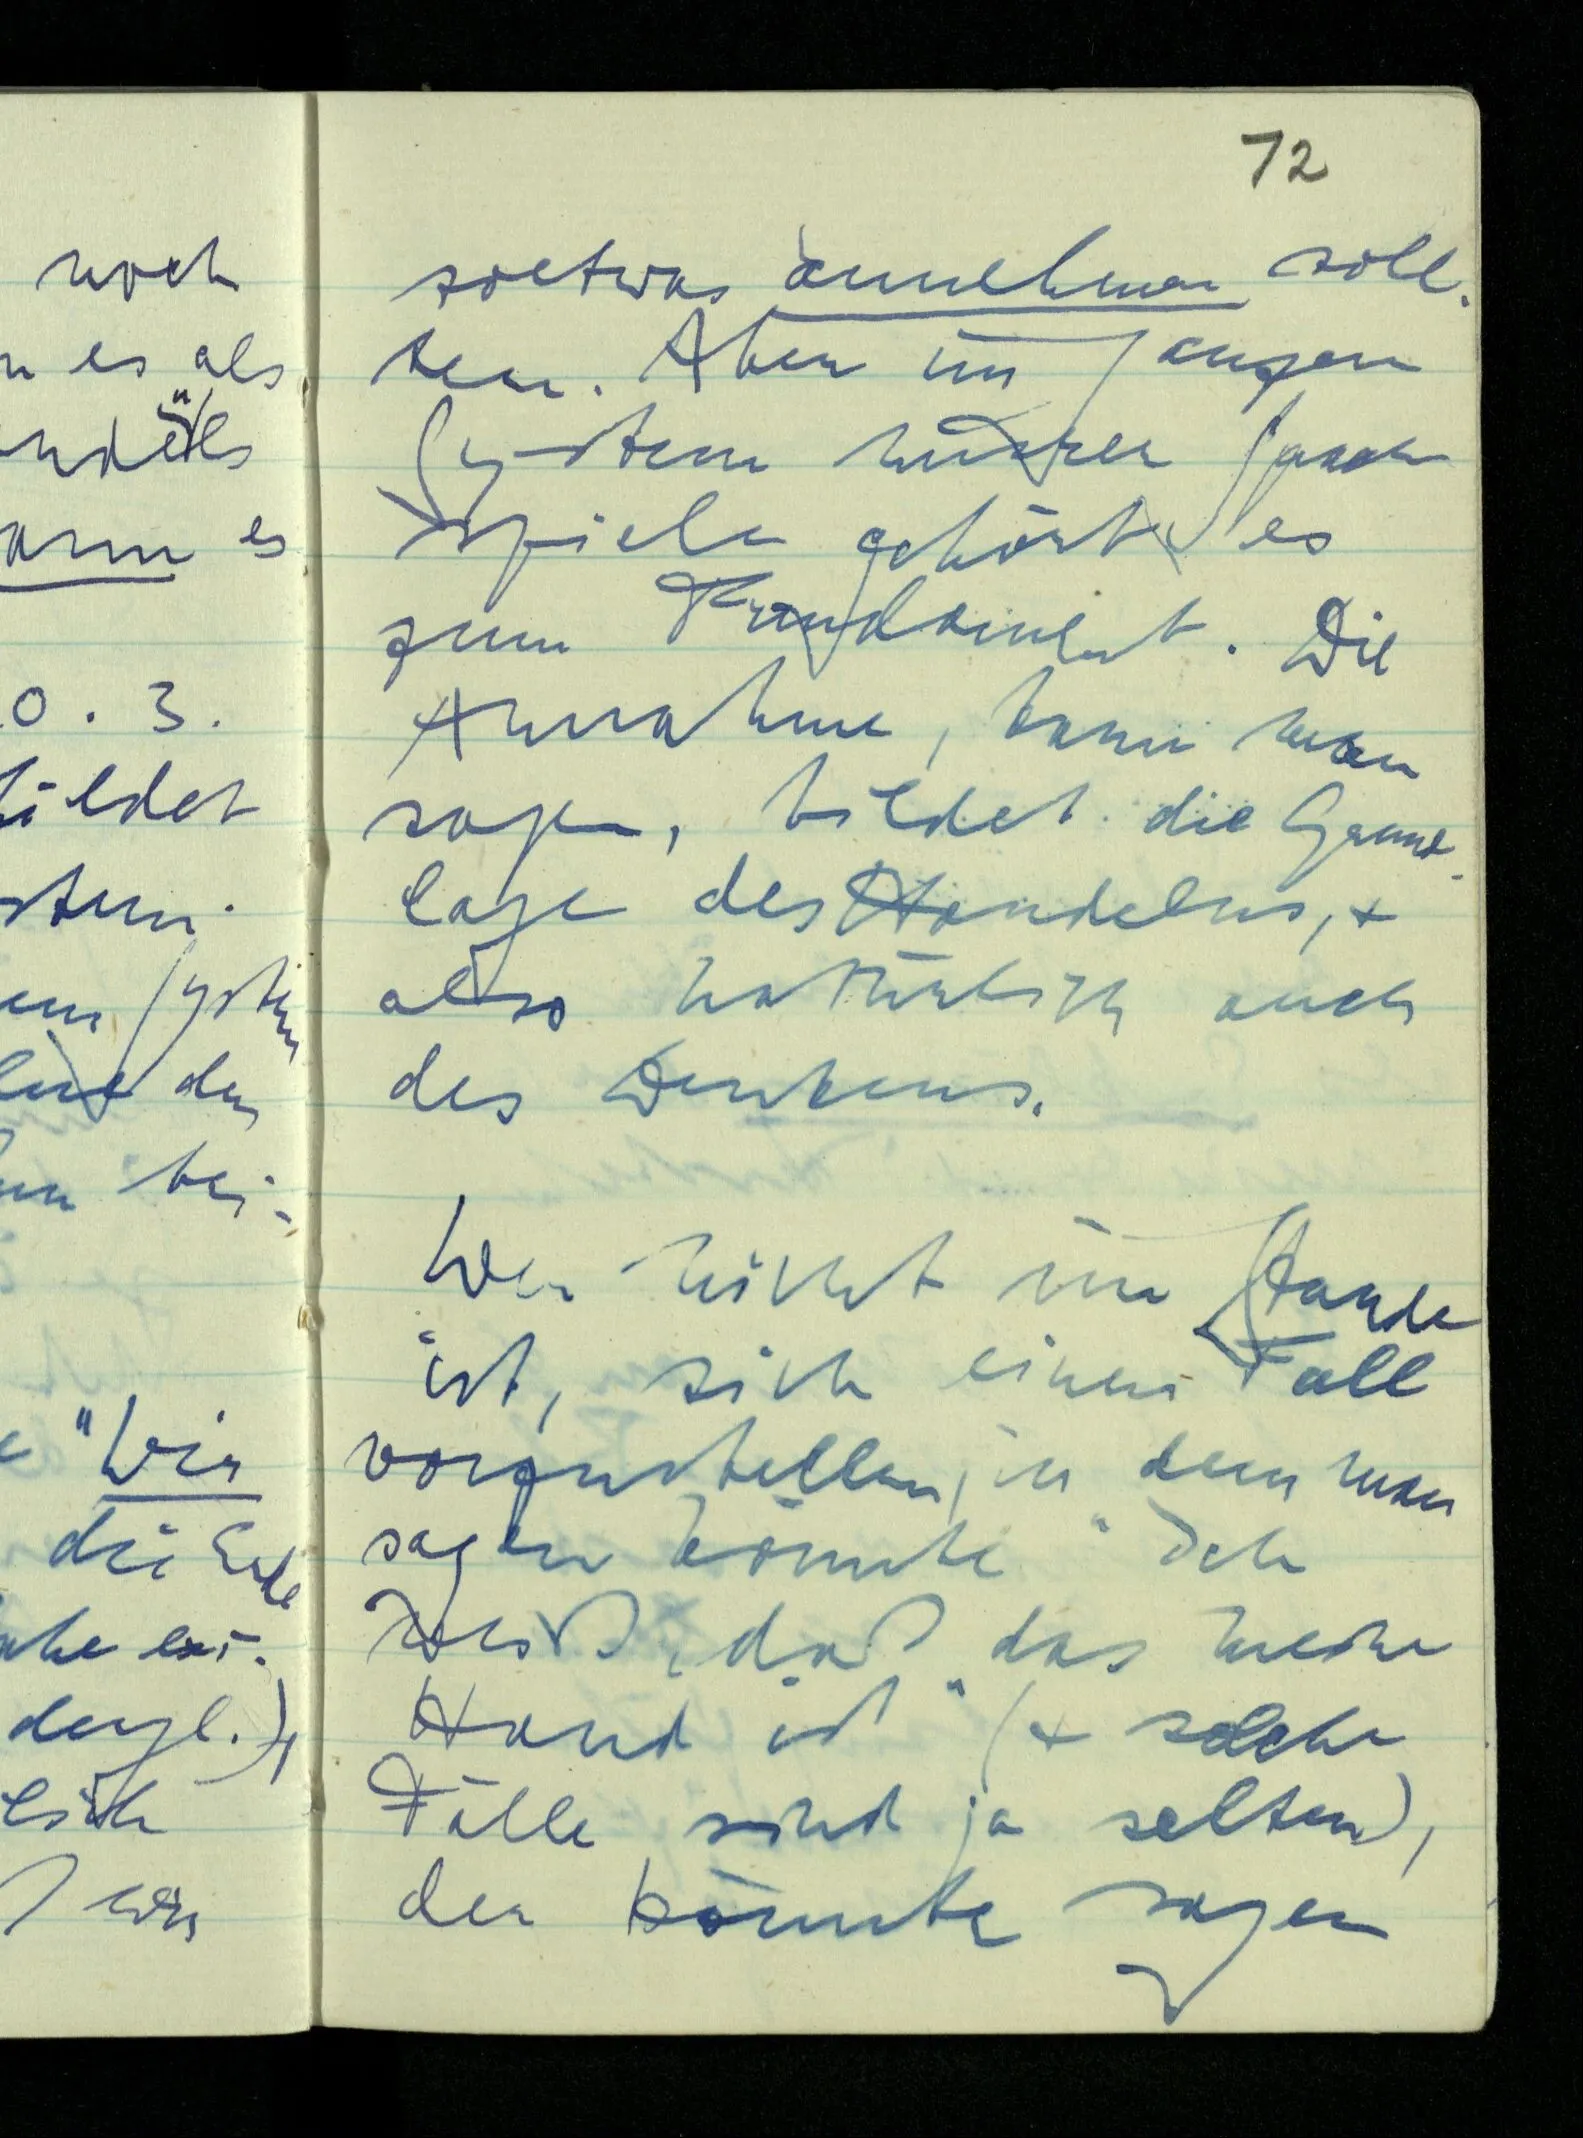 noch
n es als
ann es
0.3.
bildet
stem.
em System
der
bei-
"Wir
die Erde
dergl.)
lich
wir
72
soetwas annehmen soll-
ten. Aber im ganzen
System unsrer Sprach
spiele gehört es
zum Fundament. Die
Annahme, kann man
sagen, bildet die Grund-
lage des Handelns, +
also natürlich auch
des Denkens.
Wer nicht im Stande
ist, sich einen Fall
vorzustellen, in dem man
sagen könnte "Ich
weiß, daß das meine
Hand ist" (+ solche
Fälle sind ja selten),
der könnte sagen